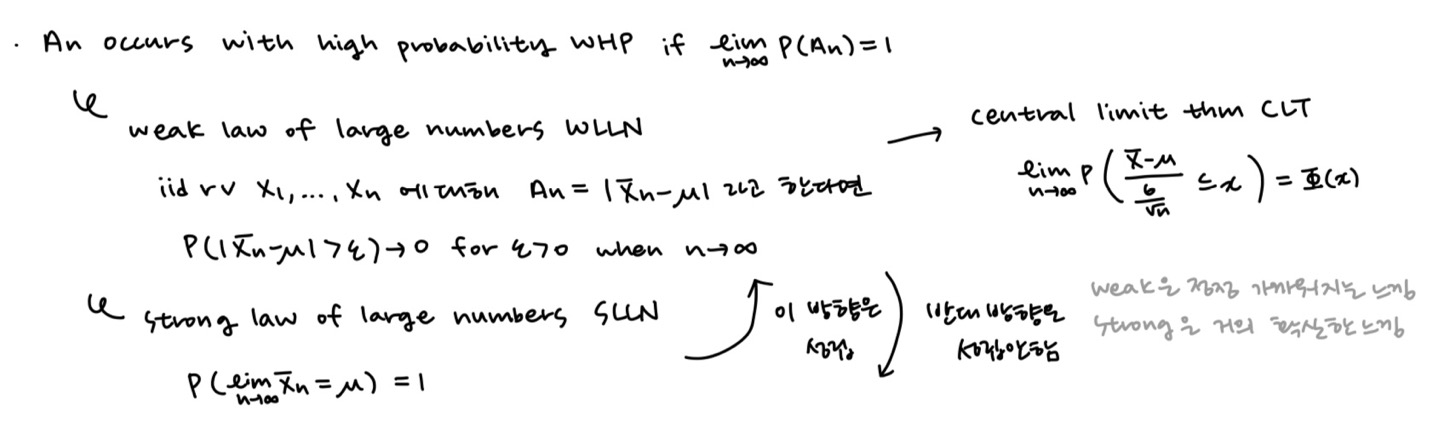 · An occurs with high probability WHP if lim n→∞ P(An)=1
weak law of large numbers WLLN
iid rv X1, ..., Xn 에 대한 An = |X̄n-μ| 라고 한다면
P(|X̄n-μ|>ε)→0 for ε>0 when n→∞
→ central limit thm CLT
lim n→∞ P( (X̄-μ)/(σ/√n) ≤ x ) = Φ(x)
strong law of large numbers SLLN
P(lim n→∞ X̄n = μ) = 1
이 방향은
성립
반대 방향은
성립안함
weak은 점점 가까워지는 느낌
strong은 거의 확실한 느낌